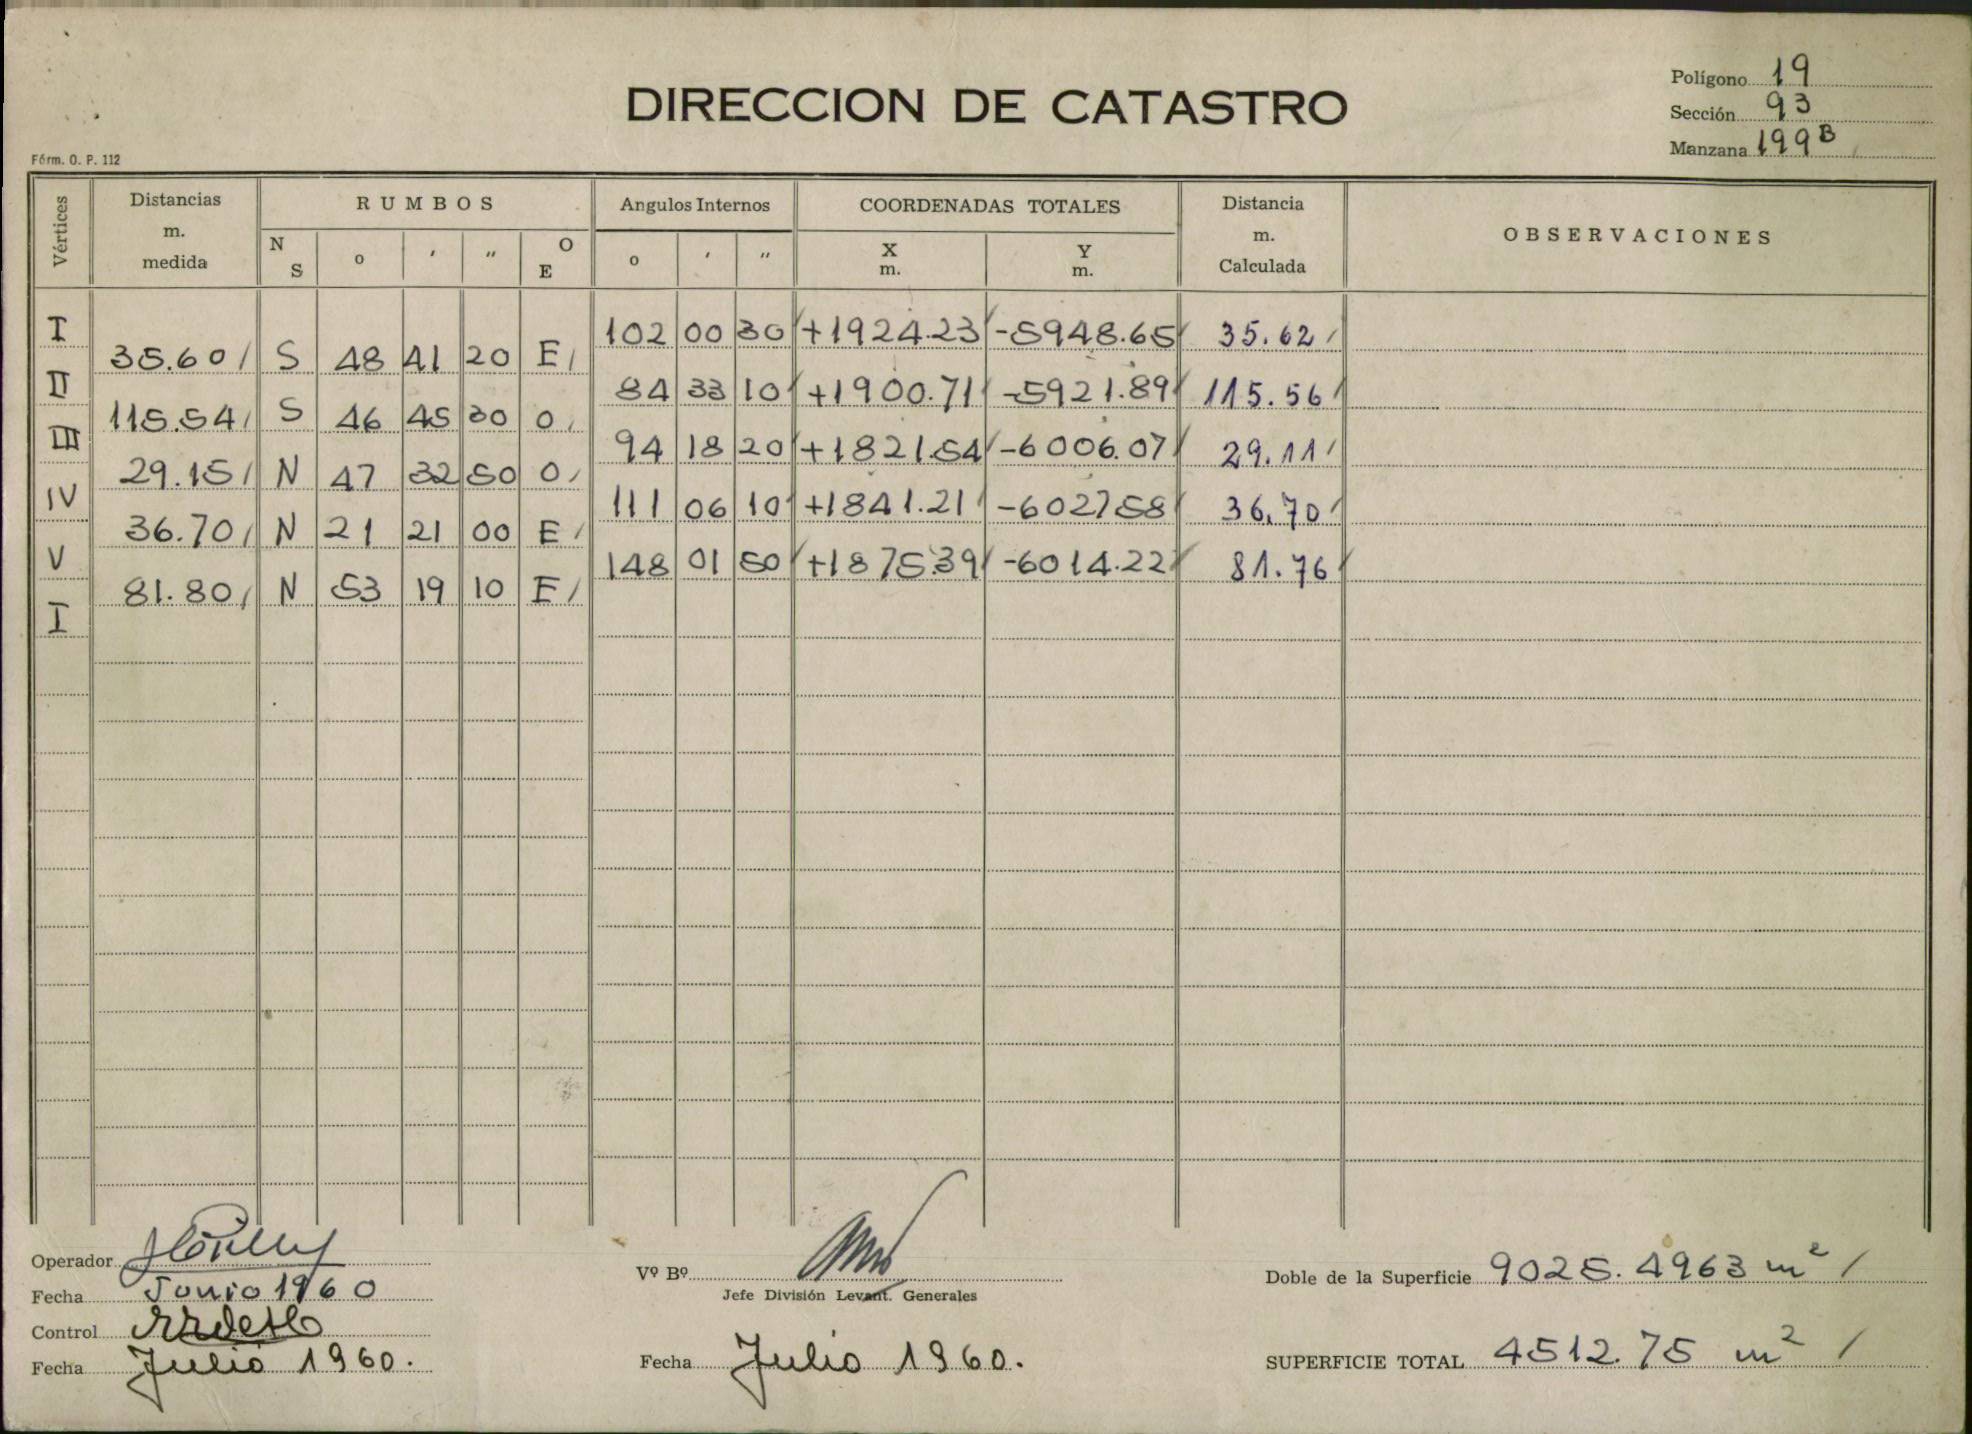 Polígono 19
DIRECCION DE CATASTRO
Sección 93
Manzana 199B
Fórm. O. P. 112
Vértices Distancias m. medida RUMBOS Angulos Internos COORDENADAS TOTALES Distancia m. Calculada OBSERVACIONES
N S o ' " O E o ' " X m. Y m.
I 102 00 30 +1924.23 -5948.65 35.62
35.60 S 48 41 20 E
II 84 33 10 +1900.71 -5921.89 115.56
115.54 S 46 45 30 O
III 94 18 20 +1821.54 -6006.07 29.11
29.15 N 47 32 50 O
IV 111 06 10 +1841.21 -602758 36.70
36.70 N 21 21 00 E
V 148 01 50 +1875.39 -6014.22 81.76
81.80 N 53 19 10 E
I
Operador
Fecha Junio 1960
Control
Fecha Julio 1960.
Vº Bº
Jefe División Levant. Generales
Fecha Julio 1960.
Doble de la Superficie 9025.4963 m²
SUPERFICIE TOTAL 4512.75 m²